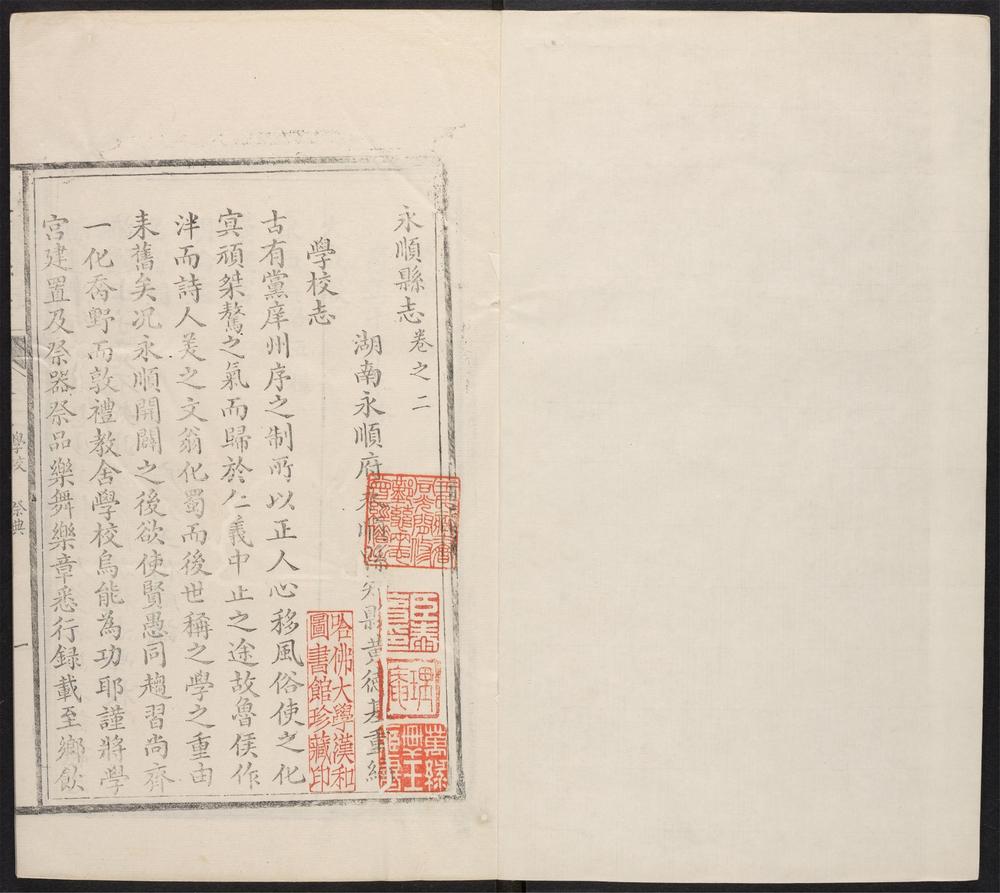 永順縣志卷之二
湖南永順府永順縣知縣黃德基重編
學校志
古有黨庠州序之制所以正人心移風俗使之化
㝠頑桀驁之氣而歸於仁義中正之途故魯侯作
泮而詩人美之文翁化蜀而後世稱之學之重由
来舊矣况永順開闢之後欲使賢愚同趨習尚齊
一化喬野而敦禮教舍學校烏能為功耶謹將學
宮建置及祭器祭品樂舞樂章悉行録載至鄉飲
學校 祭典
一
哈佛大學漢和
圖書館珍藏印